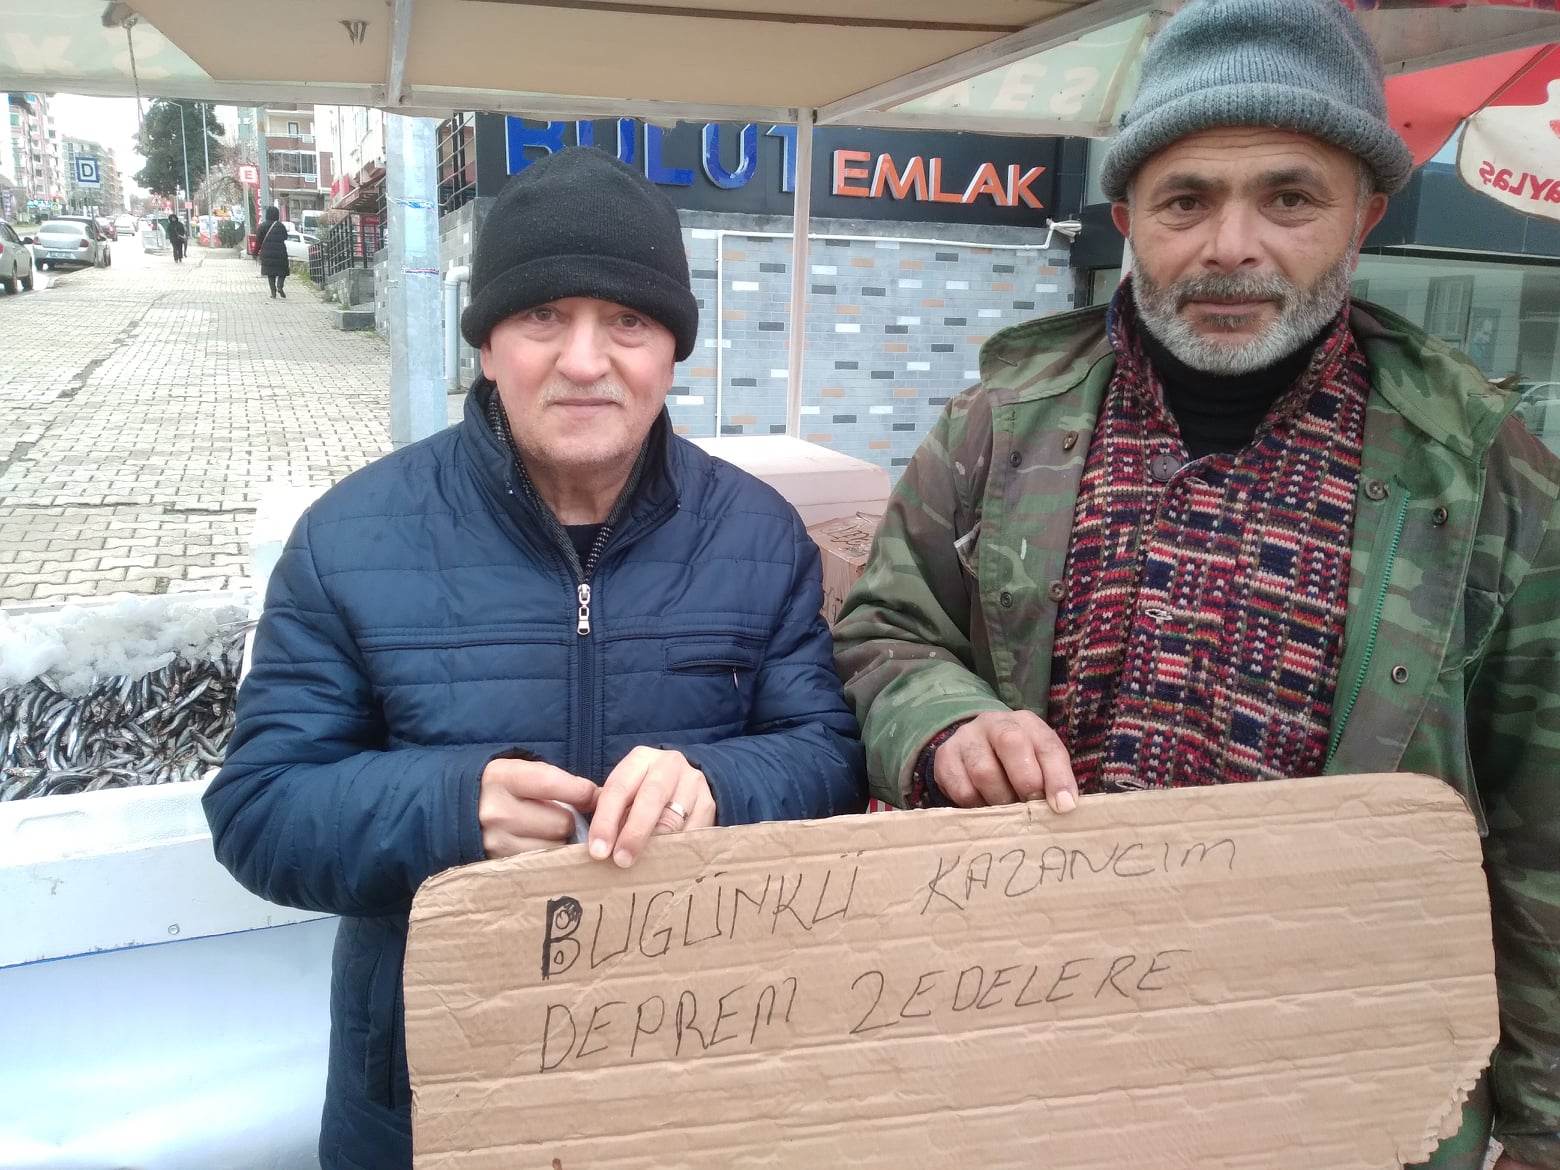 BULUT EMLAK
D
E
BUGÜNKÜ KAZANCIM
DEPREM ZEDELERE